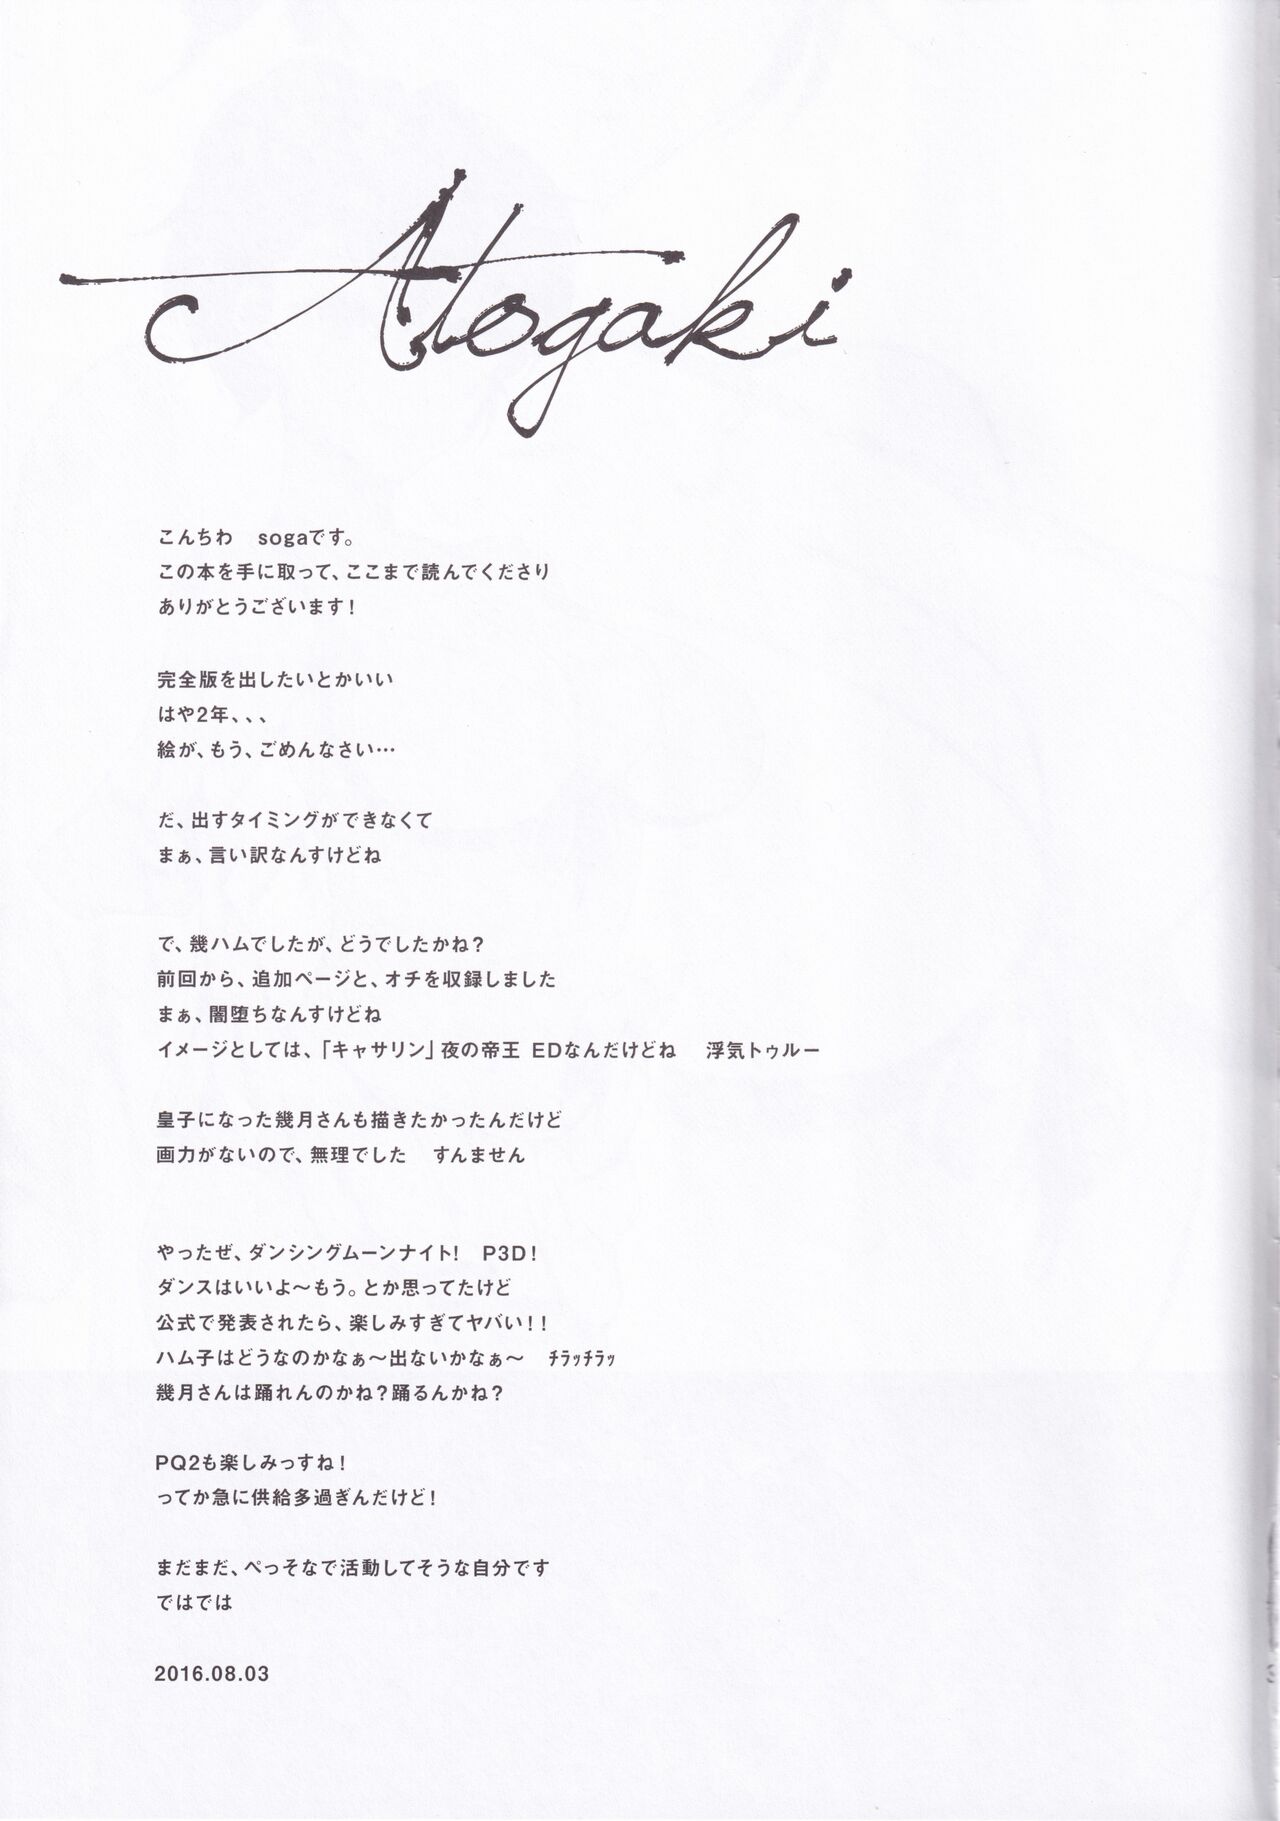 Atogaki
こんちわ　sogaです。
この本を手に取って、ここまで読んでくださり
ありがとうございます！
完全版を出したいとかいい
はや2年、、、
絵が、もう、ごめんなさい…
だ、出すタイミングができなくて
まぁ、言い訳なんすけどね
で、幾ハムでしたが、どうでしたかね？
前回から、追加ページと、オチを収録しました
まぁ、闇堕ちなんすけどね
イメージとしては、「キャサリン」夜の帝王 EDなんだけどね　浮気トゥルー
皇子になった幾月さんも描きたかったんだけど
画力がないので、無理でした　すんません
やったぜ、ダンシングムーンナイト！　P3D！
ダンスはいいよ～もう。とか思ってたけど
公式で発表されたら、楽しみすぎてヤバい！！
ハム子はどうなのかなぁ～出ないかなぁ～　ﾁﾗｯﾁﾗｯ
幾月さんは踊れんのかね？踊るんかね？
PQ2も楽しみっすね！
ってか急に供給多過ぎんだけど！
まだまだ、ぺっそなで活動してそうな自分です
ではでは
2016.08.03